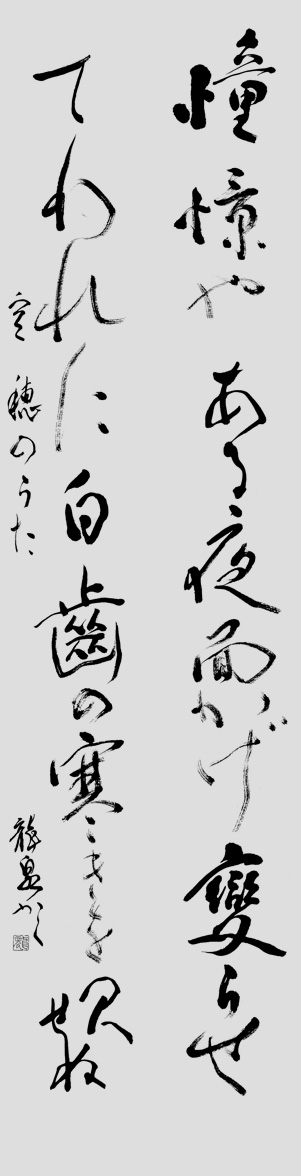 憧憬やある夜面かげ變らせ
てわれに白齒の寒きを見せね
空穂のうた
龍泉かく